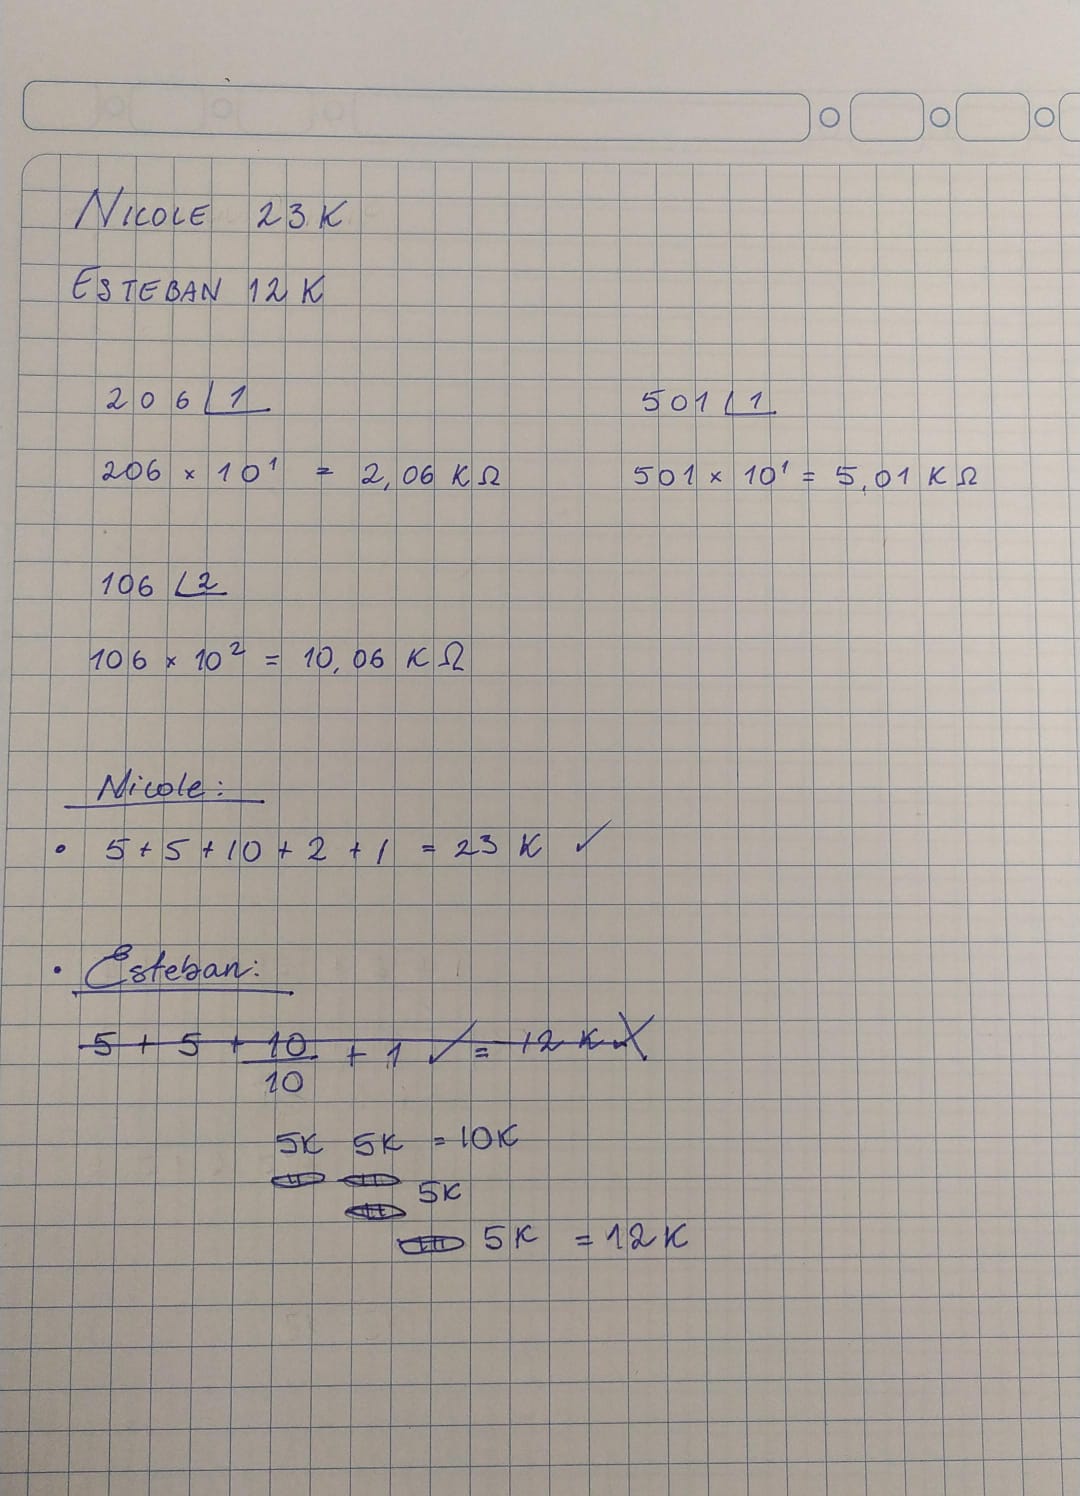 NICOLE 23 K
ESTEBAN 12 K
206 1
501 1
206 × 10¹ = 2,06 KΩ
501 × 10¹ = 5,01 KΩ
106 2
106 × 10² = 10,06 KΩ
Nicole:
• 5 + 5 + 10 + 2 + 1 = 23 K ✓
• Esteban:
5 + 5 + 10/10 + 1 ✓ = 12 K X
5K 5K = 10K
5K
5K = 12K